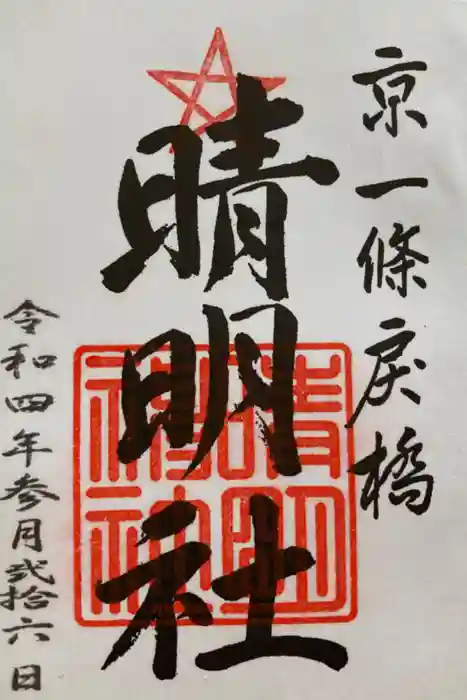 京一條戻橋
晴明社
晴明神社
令和四年参月弐拾六日